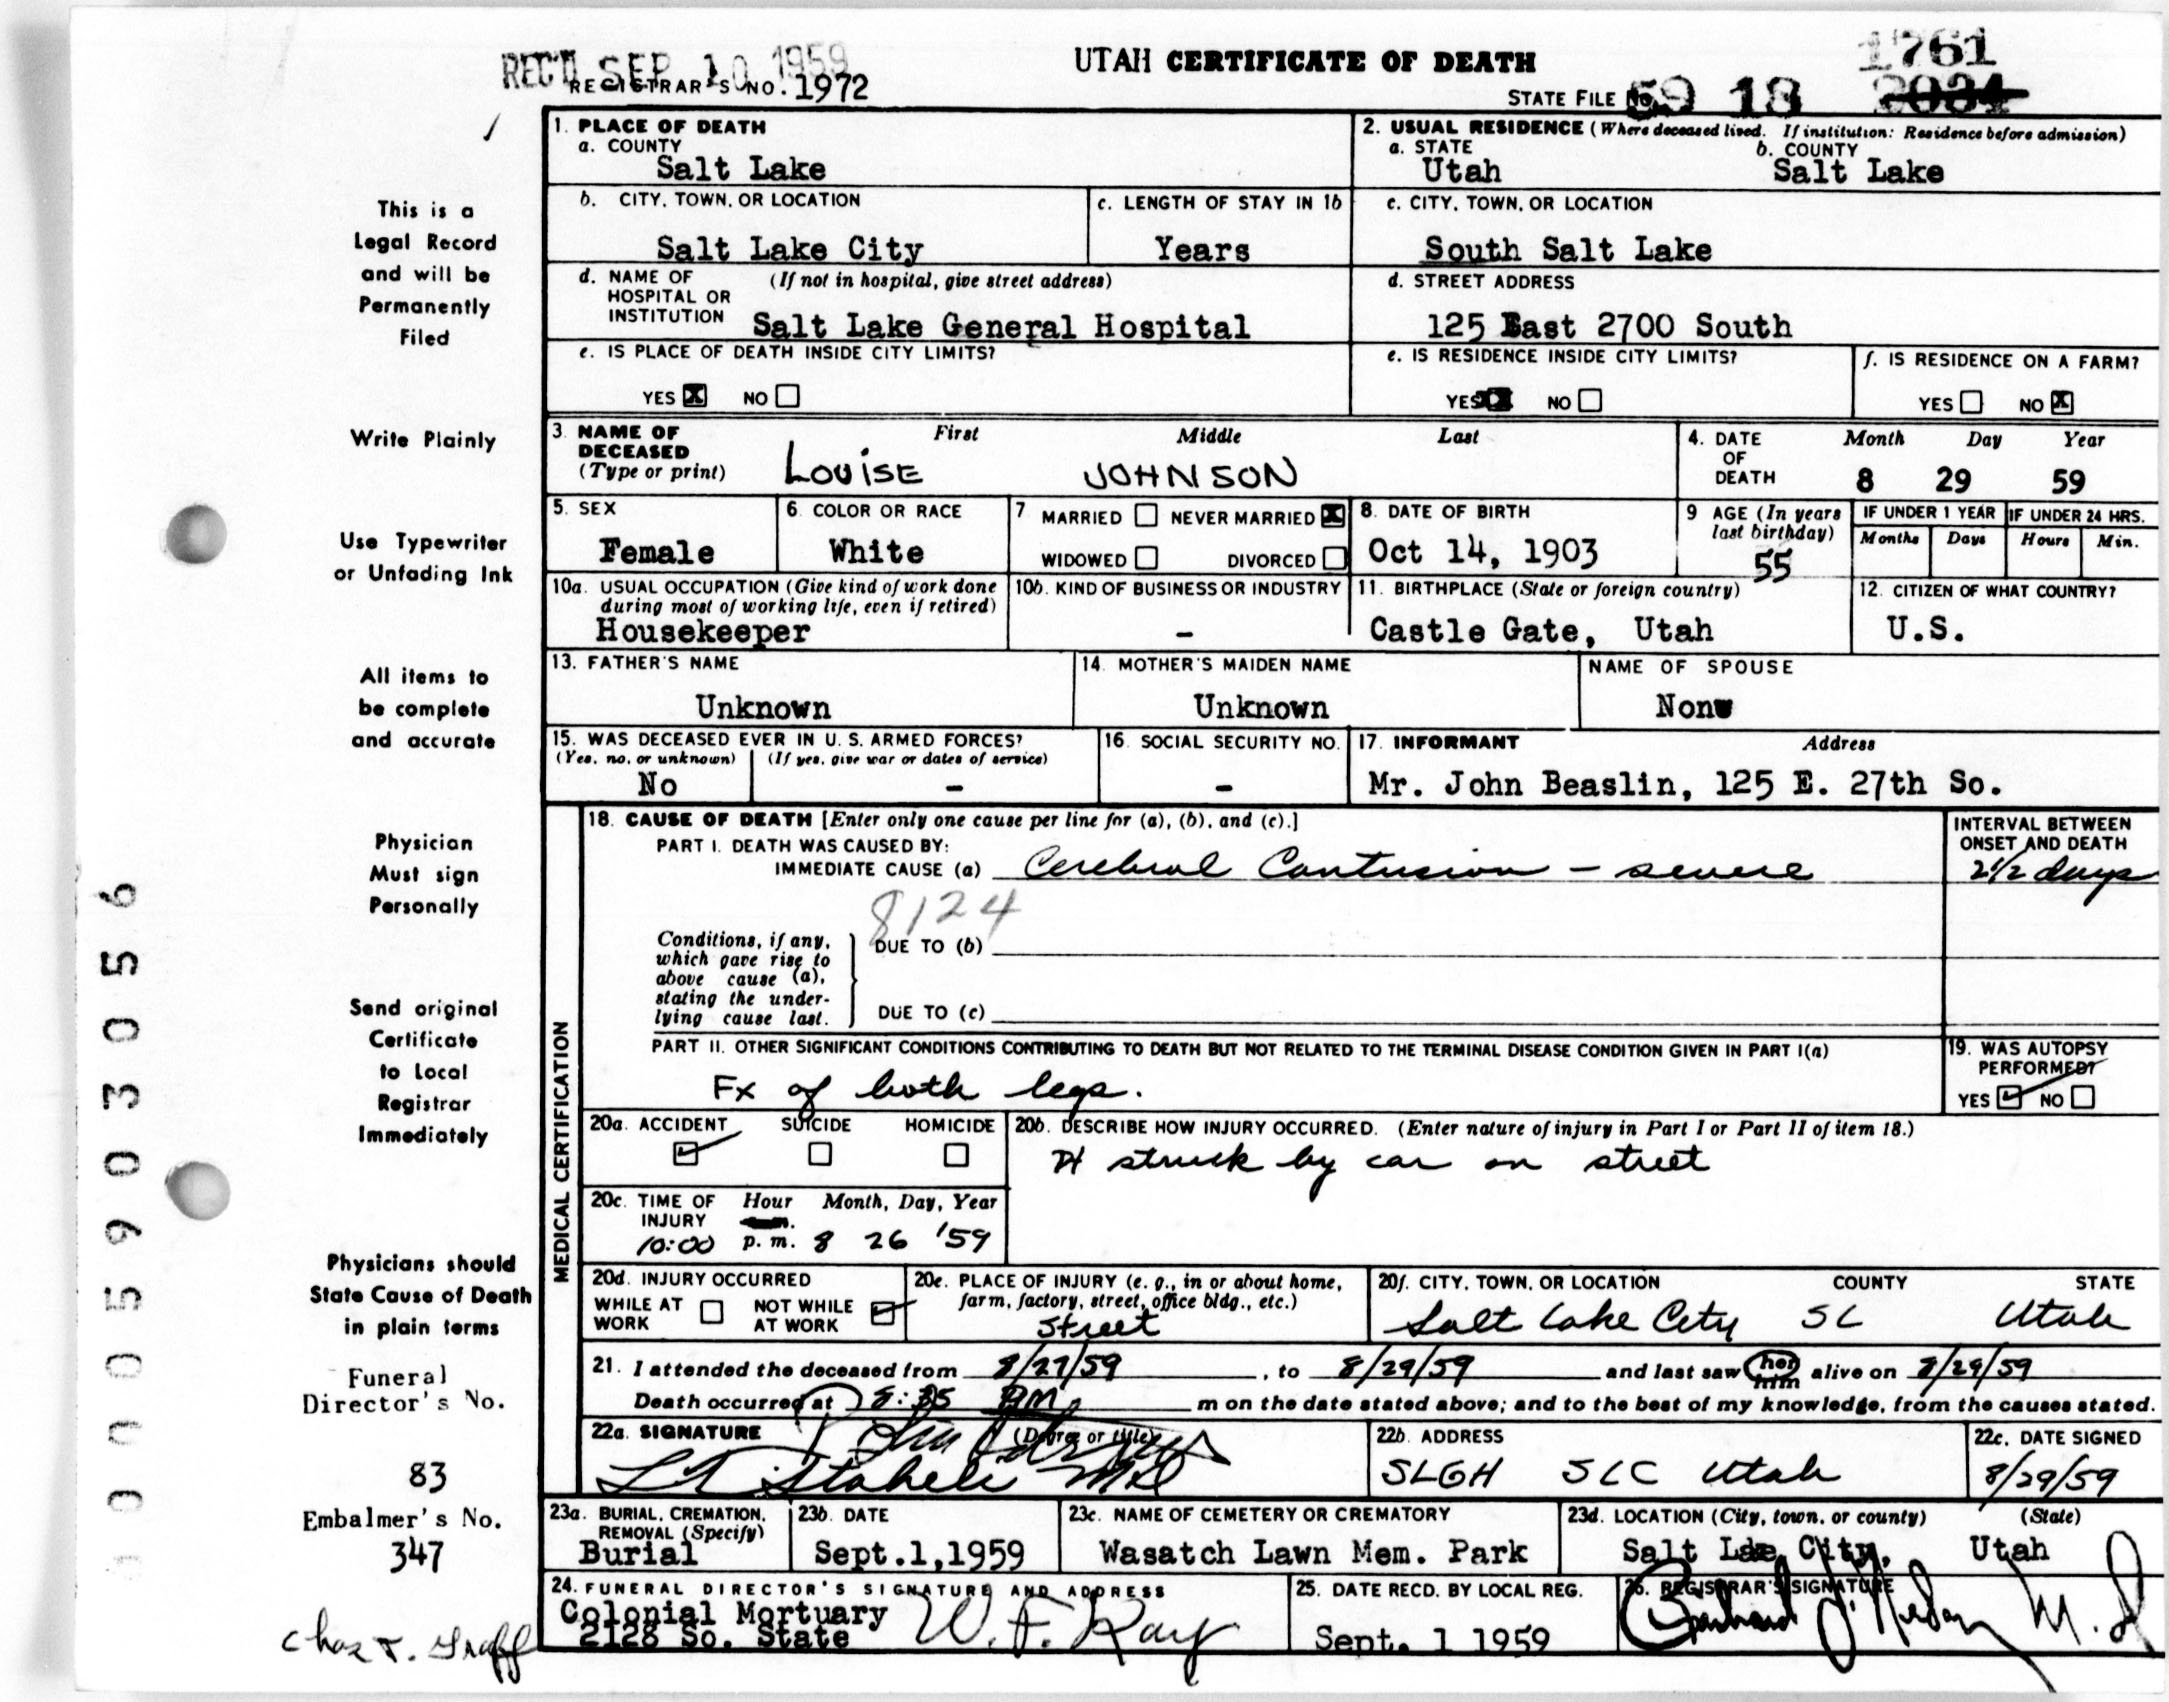 REC'D SEP 10 1959
REGISTRAR'S NO. 1972
UTAH CERTIFICATE OF DEATH
1761
STATE FILE No. 59 18 2034
1. PLACE OF DEATH
a. COUNTY
Salt Lake
2. USUAL RESIDENCE (Where deceased lived. If institution: Residence before admission)
a. STATE b. COUNTY
Utah Salt Lake
b. CITY, TOWN, OR LOCATION
Salt Lake City
c. LENGTH OF STAY IN 1b
Years
c. CITY, TOWN, OR LOCATION
South Salt Lake
d. NAME OF HOSPITAL OR INSTITUTION (If not in hospital, give street address)
Salt Lake General Hospital
d. STREET ADDRESS
125 East 2700 South
e. IS PLACE OF DEATH INSIDE CITY LIMITS?
YES X NO
e. IS RESIDENCE INSIDE CITY LIMITS?
YES X NO
f. IS RESIDENCE ON A FARM?
YES NO X
3. NAME OF DECEASED (Type or print)
First Middle Last
LOUISE JOHNSON
4. DATE OF DEATH
Month Day Year
8 29 59
5. SEX
Female
6. COLOR OR RACE
White
7 MARRIED NEVER MARRIED X
WIDOWED DIVORCED
8. DATE OF BIRTH
Oct 14, 1903
9 AGE (In years last birthday)
55
IF UNDER 1 YEAR
Months Days
IF UNDER 24 HRS.
Hours Min.
10a. USUAL OCCUPATION (Give kind of work done during most of working life, even if retired)
Housekeeper
10b. KIND OF BUSINESS OR INDUSTRY
-
11. BIRTHPLACE (State or foreign country)
Castle Gate, Utah
12. CITIZEN OF WHAT COUNTRY?
U.S.
13. FATHER'S NAME
Unknown
14. MOTHER'S MAIDEN NAME
Unknown
NAME OF SPOUSE
None
15. WAS DECEASED EVER IN U. S. ARMED FORCES?
(Yes, no, or unknown) (If yes, give war or dates of service)
No -
16. SOCIAL SECURITY NO.
-
17. INFORMANT Address
Mr. John Beaslin, 125 E. 27th So.
MEDICAL CERTIFICATION
18. CAUSE OF DEATH [Enter only one cause per line for (a), (b), and (c).]
PART I. DEATH WAS CAUSED BY:
IMMEDIATE CAUSE (a) Cerebral Contusion - severe
INTERVAL BETWEEN ONSET AND DEATH
2 1/2 days
8124
Conditions, if any, which gave rise to above cause (a), stating the underlying cause last.
DUE TO (b)
DUE TO (c)
PART II. OTHER SIGNIFICANT CONDITIONS CONTRIBUTING TO DEATH BUT NOT RELATED TO THE TERMINAL DISEASE CONDITION GIVEN IN PART I(a)
Fx of both legs.
19. WAS AUTOPSY PERFORMED?
YES NO
20a. ACCIDENT SUICIDE HOMICIDE
20b. DESCRIBE HOW INJURY OCCURRED. (Enter nature of injury in Part I or Part II of item 18.)
struck by car on street
20c. TIME OF INJURY Hour Month, Day, Year
10:00 p. m. 8 26 '59
20d. INJURY OCCURRED
WHILE AT WORK NOT WHILE AT WORK
20e. PLACE OF INJURY (e. g., in or about home, farm, factory, street, office bldg., etc.)
Street
20f. CITY, TOWN, OR LOCATION COUNTY STATE
Salt Lake City SL Utah
21. I attended the deceased from 8/27/59, to 8/29/59 and last saw her him alive on 8/29/59
Death occurred at 8:35 m on the date stated above; and to the best of my knowledge, from the causes stated.
22a. SIGNATURE (Degree or title)
Staheli MD
22b. ADDRESS
SLGH SLC Utah
22c. DATE SIGNED
8/29/59
23a. BURIAL, CREMATION, REMOVAL (Specify)
Burial
23b. DATE
Sept.1,1959
23c. NAME OF CEMETERY OR CREMATORY
Wasatch Lawn Mem. Park
23d. LOCATION (City, town, or county) (State)
Salt Lake City, Utah
24. FUNERAL DIRECTOR'S SIGNATURE AND ADDRESS
Colonial Mortuary
2128 So. State
W. F. Ray
25. DATE RECD. BY LOCAL REG.
Sept. 1 1959
26. REGISTRAR'S SIGNATURE
M. D
This is a
Legal Record
and will be
Permanently
Filed
Write Plainly
Use Typewriter
or Unfading Ink
All items to
be complete
and accurate
Physician
Must sign
Personally
Send original
Certificate
to Local
Registrar
Immediately
Physicians should
State Cause of Death
in plain terms
Funeral
Director's No.
83
Embalmer's No.
347
Chas T. Graff
000590903056